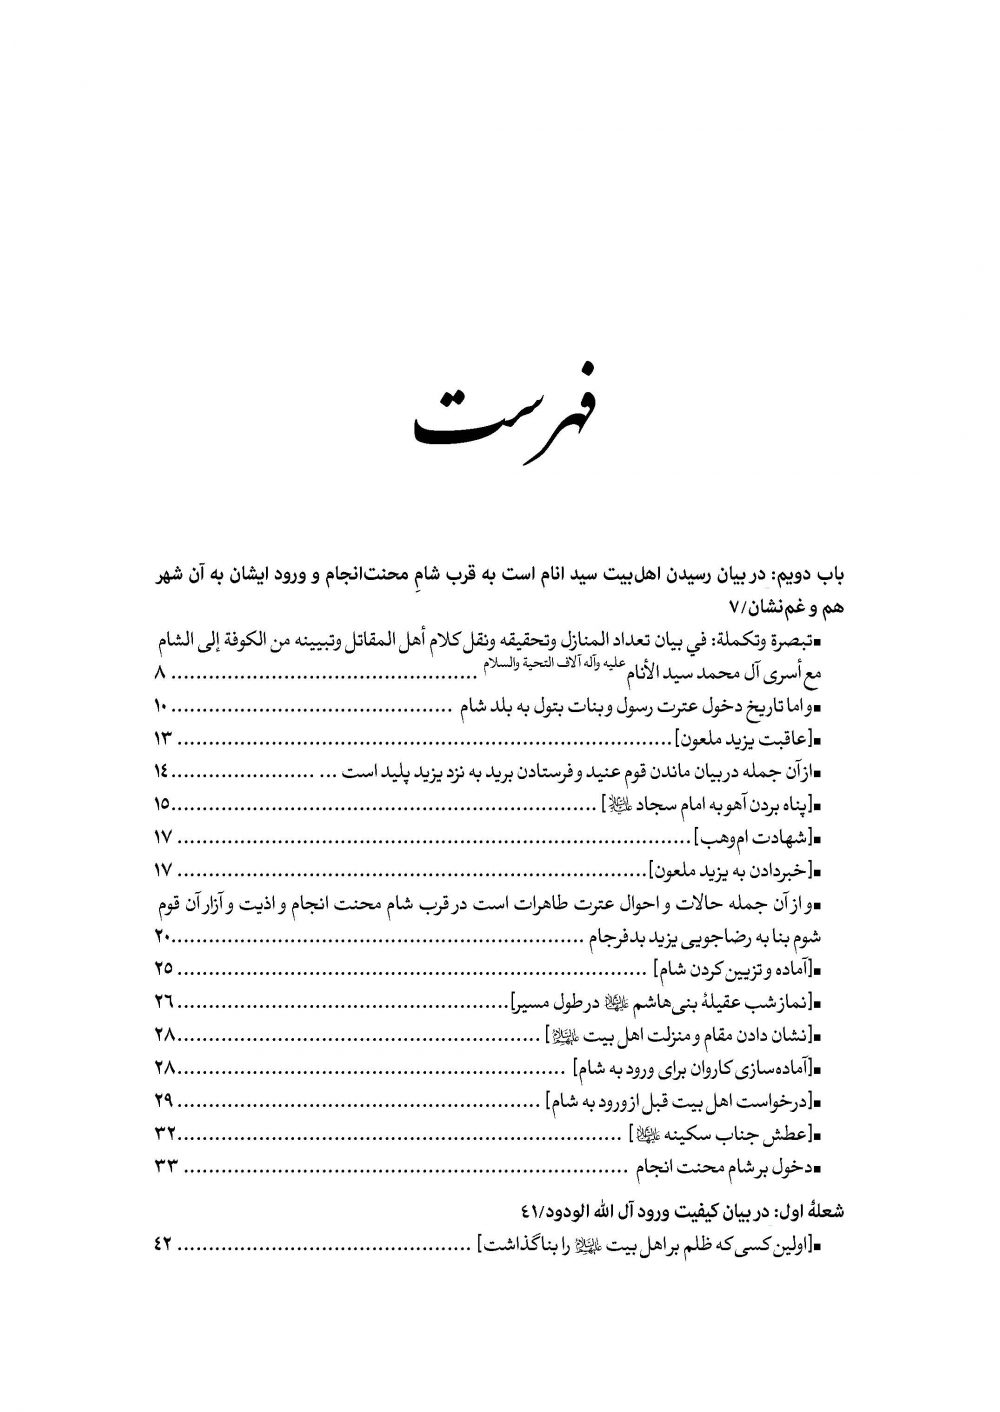 فهرست
باب دویم: در بیان رسیدن اهل‌بیت سید انام است به قرب شامِ محنت‌انجام و ورود ایشان به آن شهر
هم و غم‌نشان/۷
▪تبصرة وتكملة: في بيان تعداد المنازل وتحقيقه ونقل كلام أهل المقاتل وتبيينه من الكوفة إلى الشام
مع أسرى آل محمد سيد الأنام عليه وآله آلاف التحية والسلام ................................................ ۸
▪و اما تاریخ دخول عترت رسول و بنات بتول به بلد شام ............................................ ۱۰
▪[عاقبت یزید ملعون].............................................................................. ۱۳
▪از آن جمله در بیان ماندن قوم عنید و فرستادن برید به نزد یزید پلید است ... .......................۱٤
▪[پناه بردن آهو به امام سجاد علیه‌السلام] ...................................................................۱۵
▪[شهادت ام‌وهب]................................................................................. ۱۷
▪[خبر دادن به یزید ملعون].......................................................................... ۱۷
▪و از آن جمله حالات و احوال عترت طاهرات است در قرب شام محنت انجام و اذیت و آزار آن قوم
شوم بنا به رضاجویی یزید بدفرجام .................................................................۲۰
▪[آماده و تزیین کردن شام] ......................................................................... ۲۵
▪[نماز شب عقیلهٔ بنی‌هاشم علیهاالسلام در طول مسیر].................................................... ۲٦
▪[نشان دادن مقام و منزلت اهل بیت علیهم‌السلام] .........................................................۲۸
▪[آماده‌سازی کاروان برای ورود به شام] .............................................................۲۸
▪[درخواست اهل بیت قبل از ورود به شام] ......................................................... ۲۹
▪[عطش جناب سکینه علیهاالسلام] ......................................................................۳۲
▪دخول بر شام محنت انجام ....................................................................... ۳۳
شعلهٔ اول: در بیان کیفیت ورود آل الله الودود/٤۱
▪[اولین کسی که ظلم بر اهل بیت علیهم‌السلام را بنا گذاشت] .............................................. ٤۲